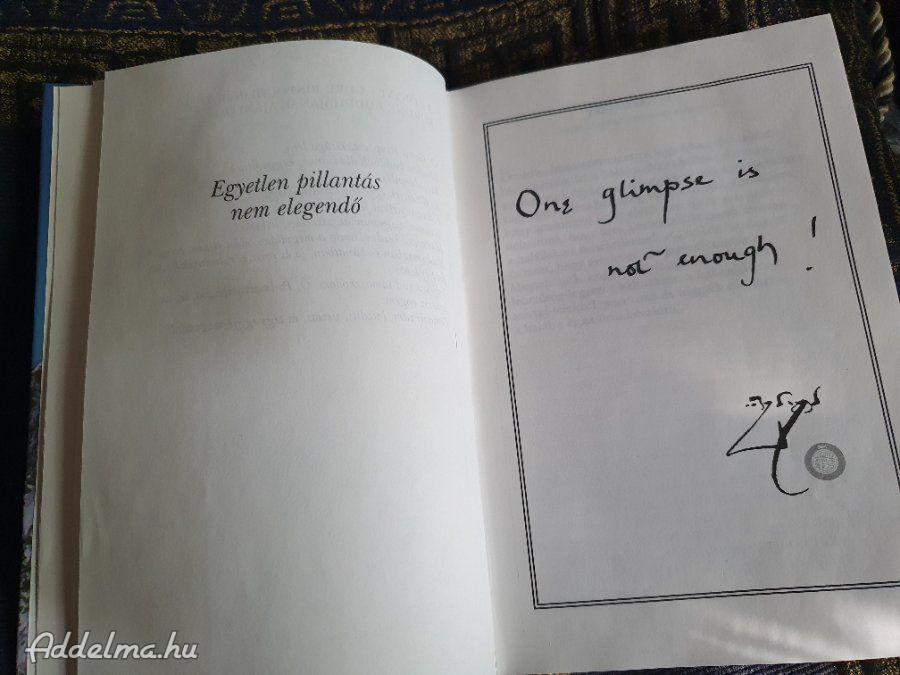 Egyetlen pillantás
nem elegendő
One glimpse is
not enough !
Addelma.hu